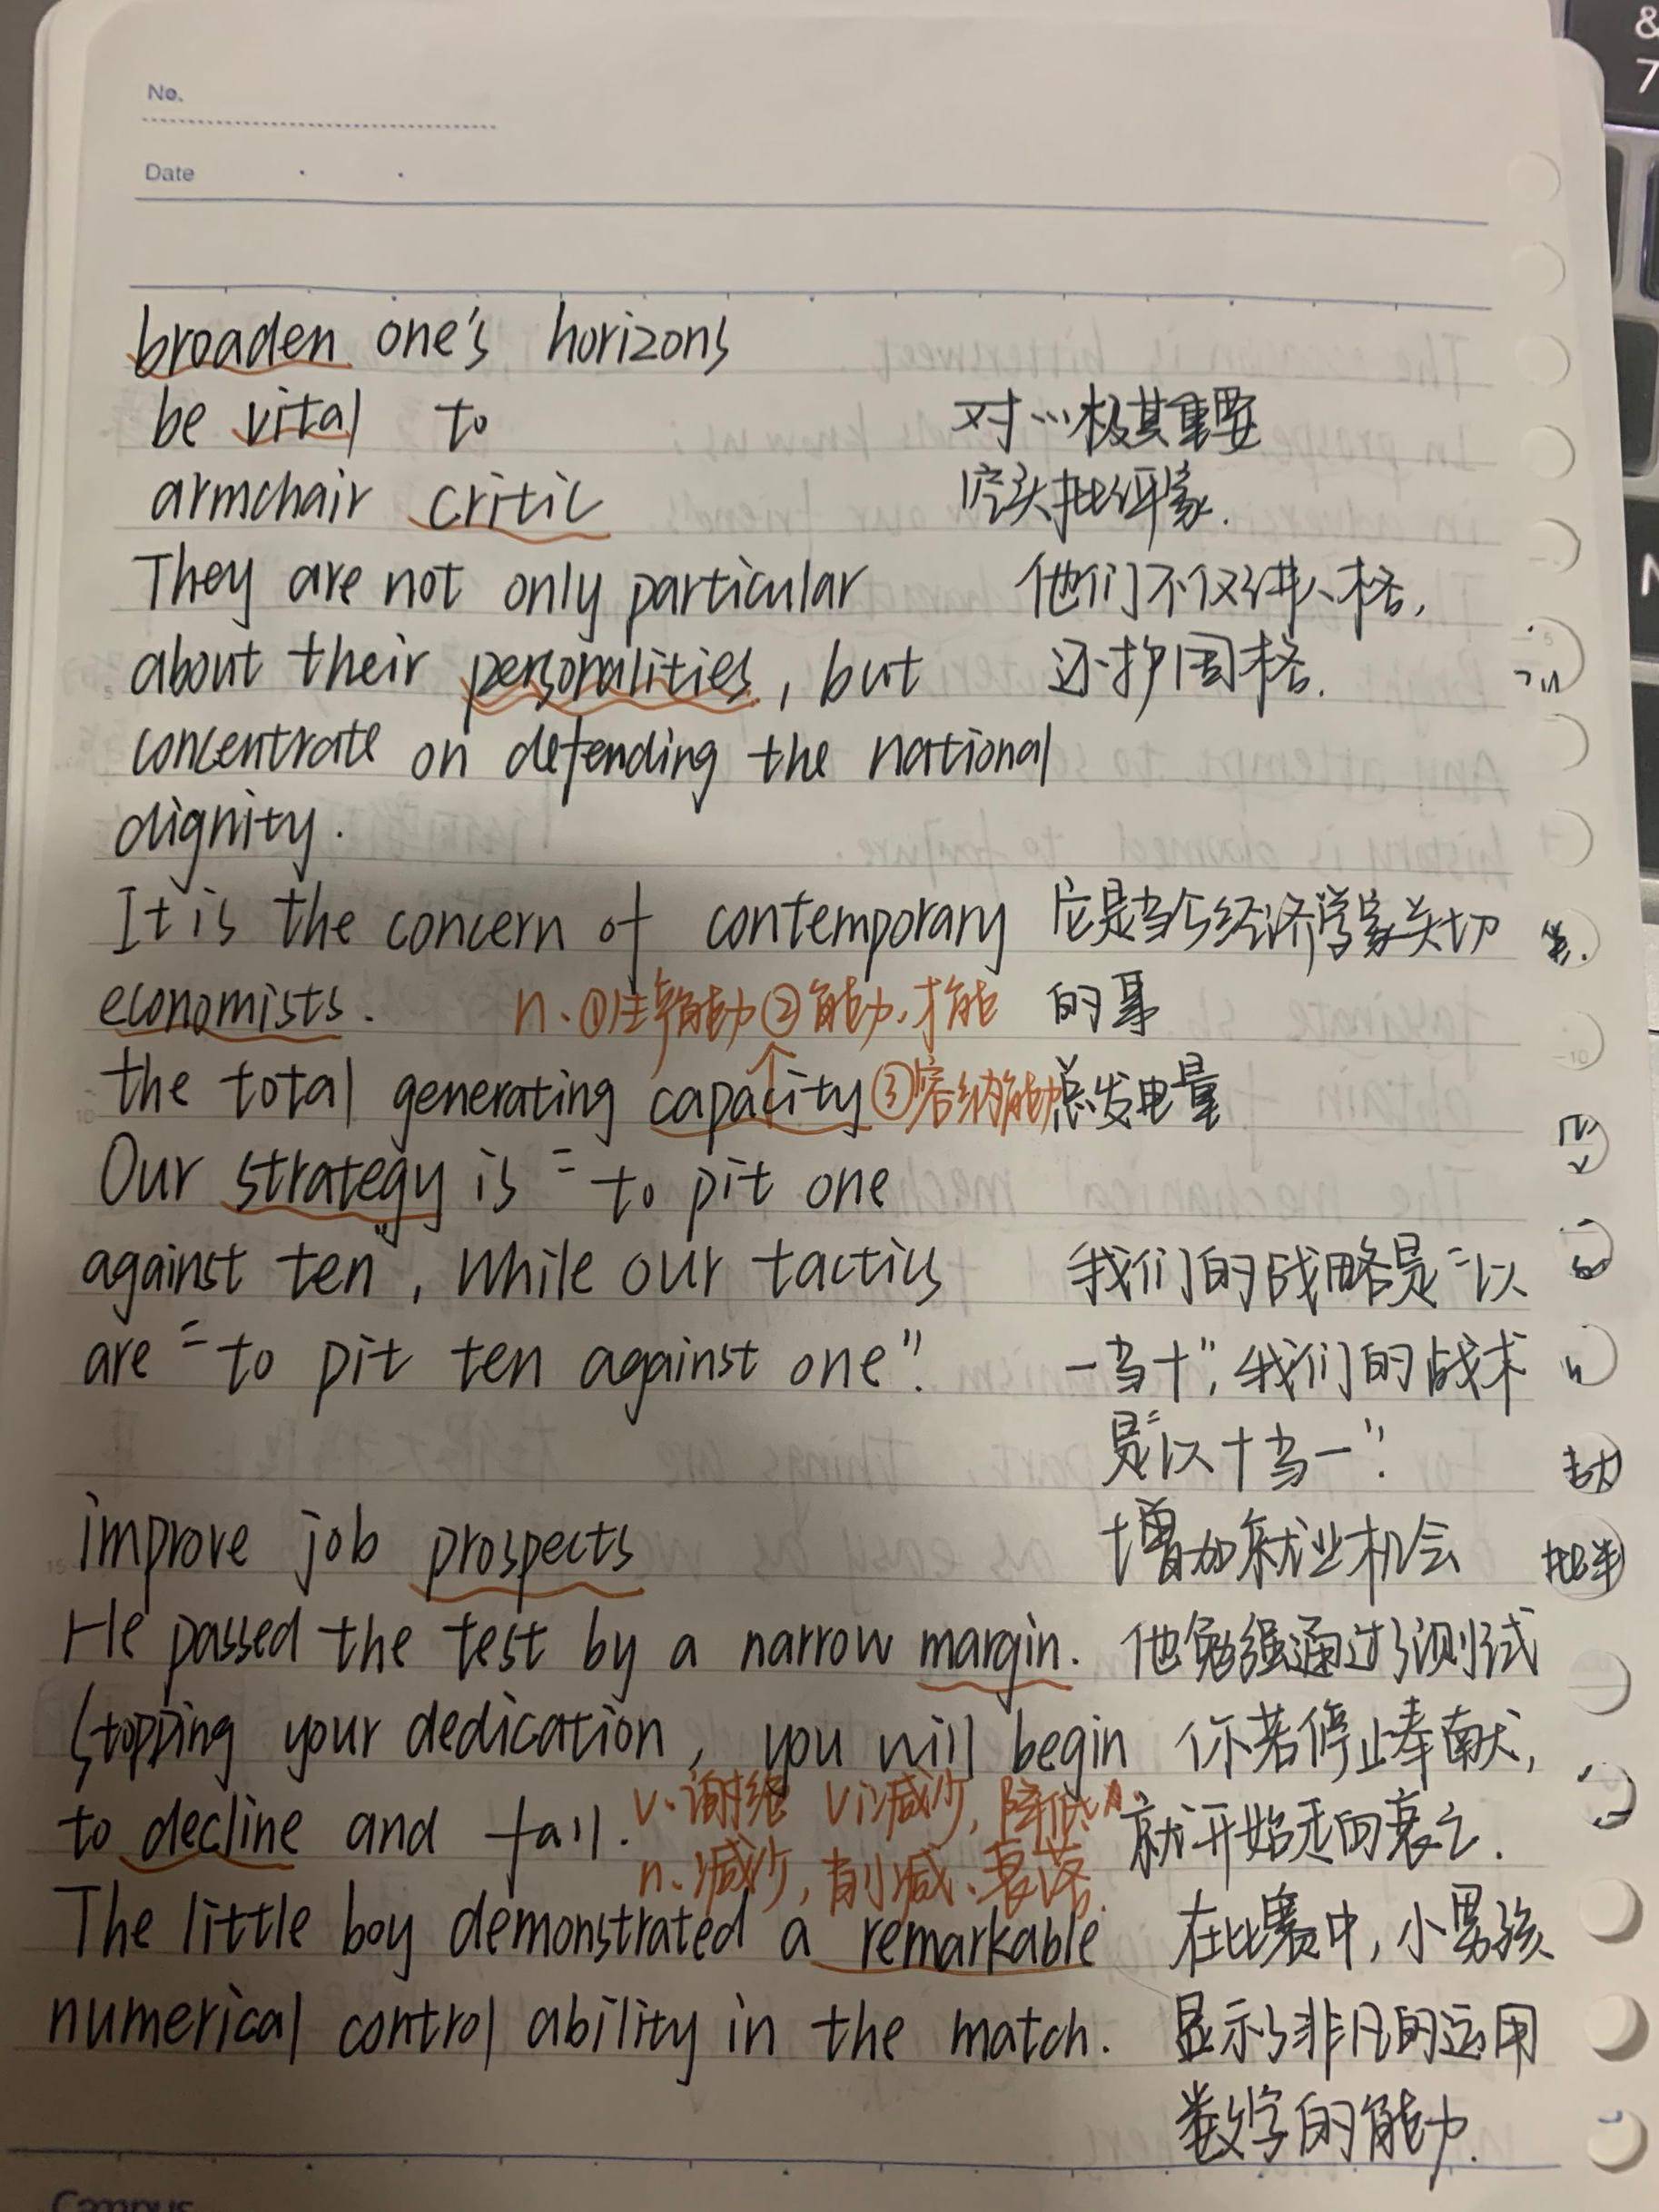 No.
Date
broaden one's horizons
be vital to 对…极其重要
armchair critic 空头批评家.
They are not only particular 他们不仅讲人格,
about their personalities, but 还护国格.
concentrate on defending the national
dignity.
It is the concern of contemporary 它是当今经济学家关切
economists. n. ①生产能力 ②能力,才能 的事
the total generating capacity ③容纳能力 总发电量
Our strategy is "to pit one
against ten", while our tactics 我们的战略是"以
are "to pit ten against one". 一当十",我们的战术
是"以十当一".
improve job prospects 增加就业机会
He passed the test by a narrow margin. 他勉强通过了测试
Stopping your dedication, you will begin 你若停止奉献,
to decline and fall. v.谢绝 vi减少,降低 就开始走向衰亡.
n.减少, 衰落.
The little boy demonstrated a remarkable 在比赛中,小男孩
numerical control ability in the match. 显示了非凡的运用
数字的能力.
Campus